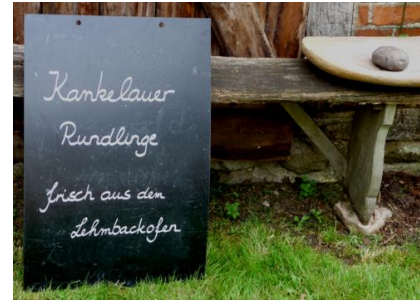 Kankelauer
Rundlinge
frisch aus dem
Lehmbackofen